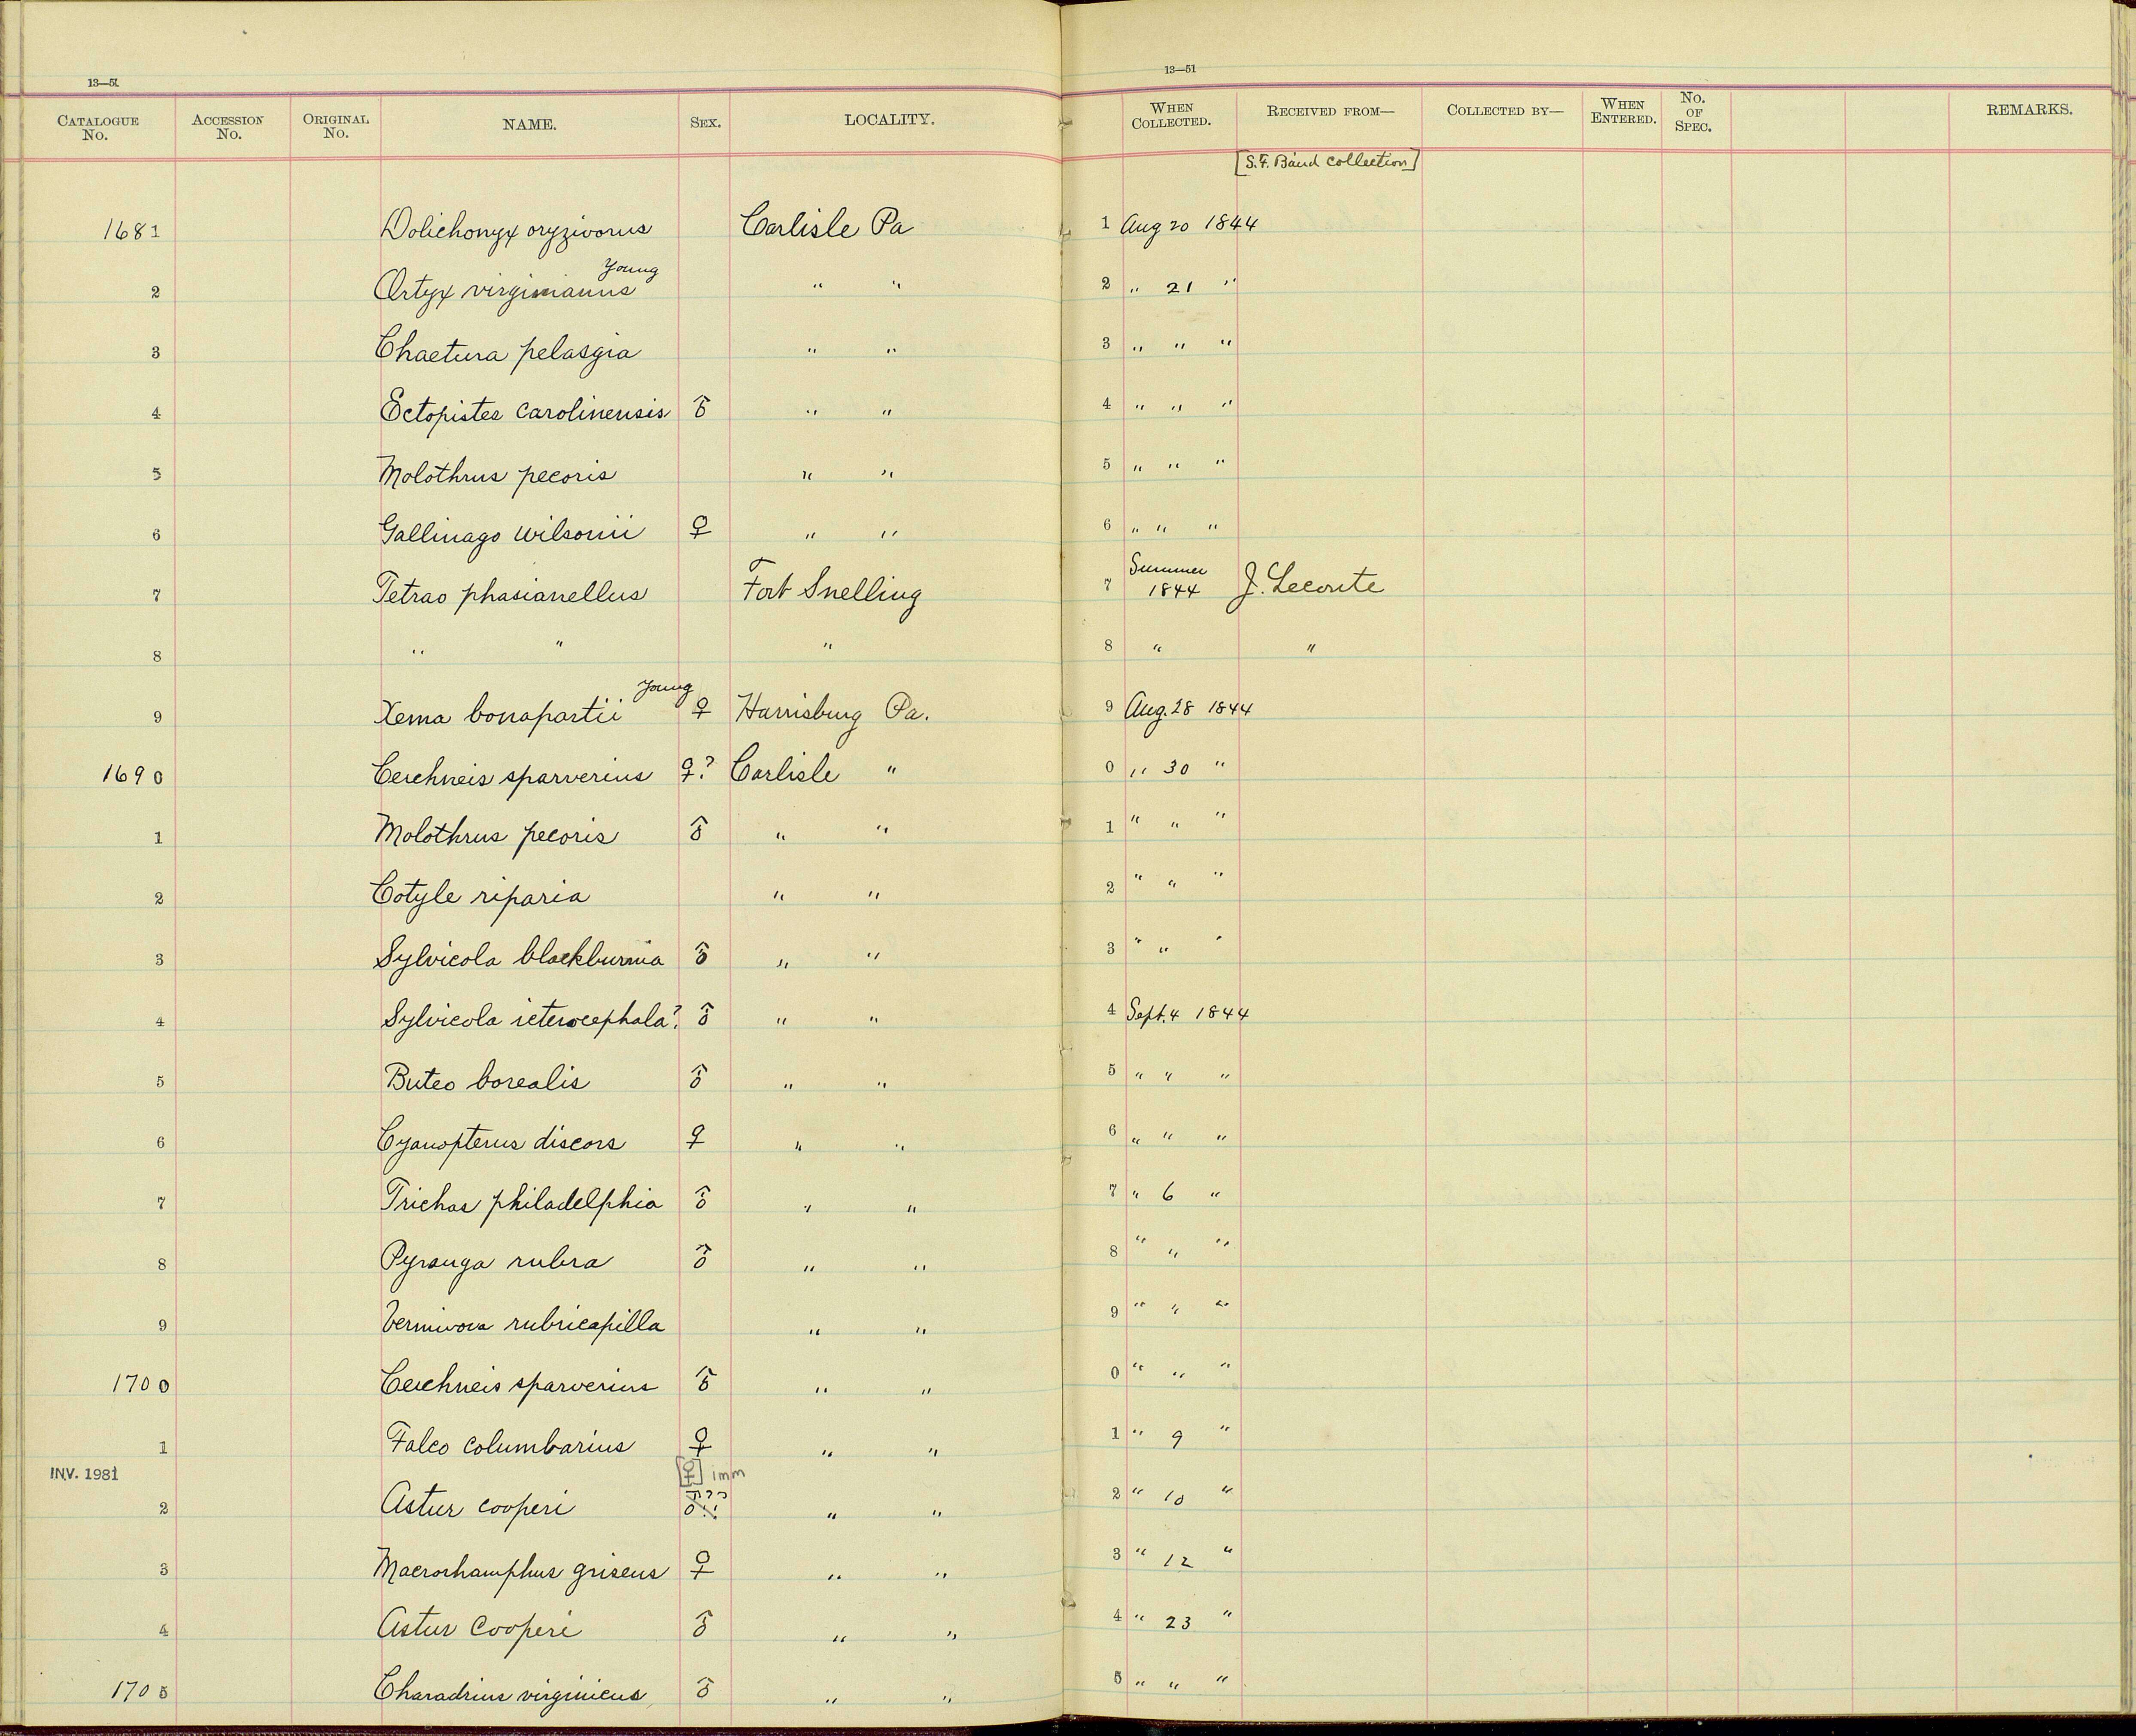 13—51
13—51
CATALOGUE No. ACCESSION No. ORIGINAL No. NAME. SEX. LOCALITY. WHEN COLLECTED. RECEIVED FROM— COLLECTED BY— WHEN ENTERED. No. OF SPEC. REMARKS.
[S. F. Baird Collection]
1681 Dolichonyx oryzivorus Carlisle Pa 1 Aug 20 1844
2 Ortyx virginianus Young " " 2 " 21 "
3 Chaetura pelasgia " " 3 " " "
4 Ectopistes carolinensis ♂ " " 4 " " "
5 Molothrus pecoris " " 5 " " "
6 Gallinago wilsonii ♀ " " 6 " " "
7 Tetrao phasianellus Fort Snelling 7 Summer 1844 J. Leconte
8 " " " 8 " "
9 Xema bonapartii Young ♀ Harrisburg Pa. 9 Aug. 28 1844
1690 Cerchneis sparverius ♀? Carlisle " 0 " 30 "
1 Molothrus pecoris ♂ " " 1 " " "
2 Cotyle riparia " " 2 " " "
3 Sylvicola blackburnia ♂ " " 3 " " "
4 Sylvicola icterocephala? ♂ " " 4 Sept. 4 1844
5 Buteo borealis ♂ " " 5 " " "
6 Cyanopterus discors ♀ " " 6 " " "
7 Trichas philadelphia ♂ " " 7 " 6 "
8 Pyranga rubra ♂ " " 8 " " "
9 Vermivora rubricapilla " " 9 " " "
1700 Cerchneis sparverius ♂ " " 0 " " "
1 Falco columbarius ♀ " " 1 " 9 "
INV. 1981 [♀] imm
2 Astur cooperi ♂?? " " 2 " 10 "
3 Macrorhamphus griseus ♀ " " 3 " 12 "
4 Astur Cooperi ♂ " " 4 " 23 "
1705 Charadrius virginicus ♂ " " 5 " " "